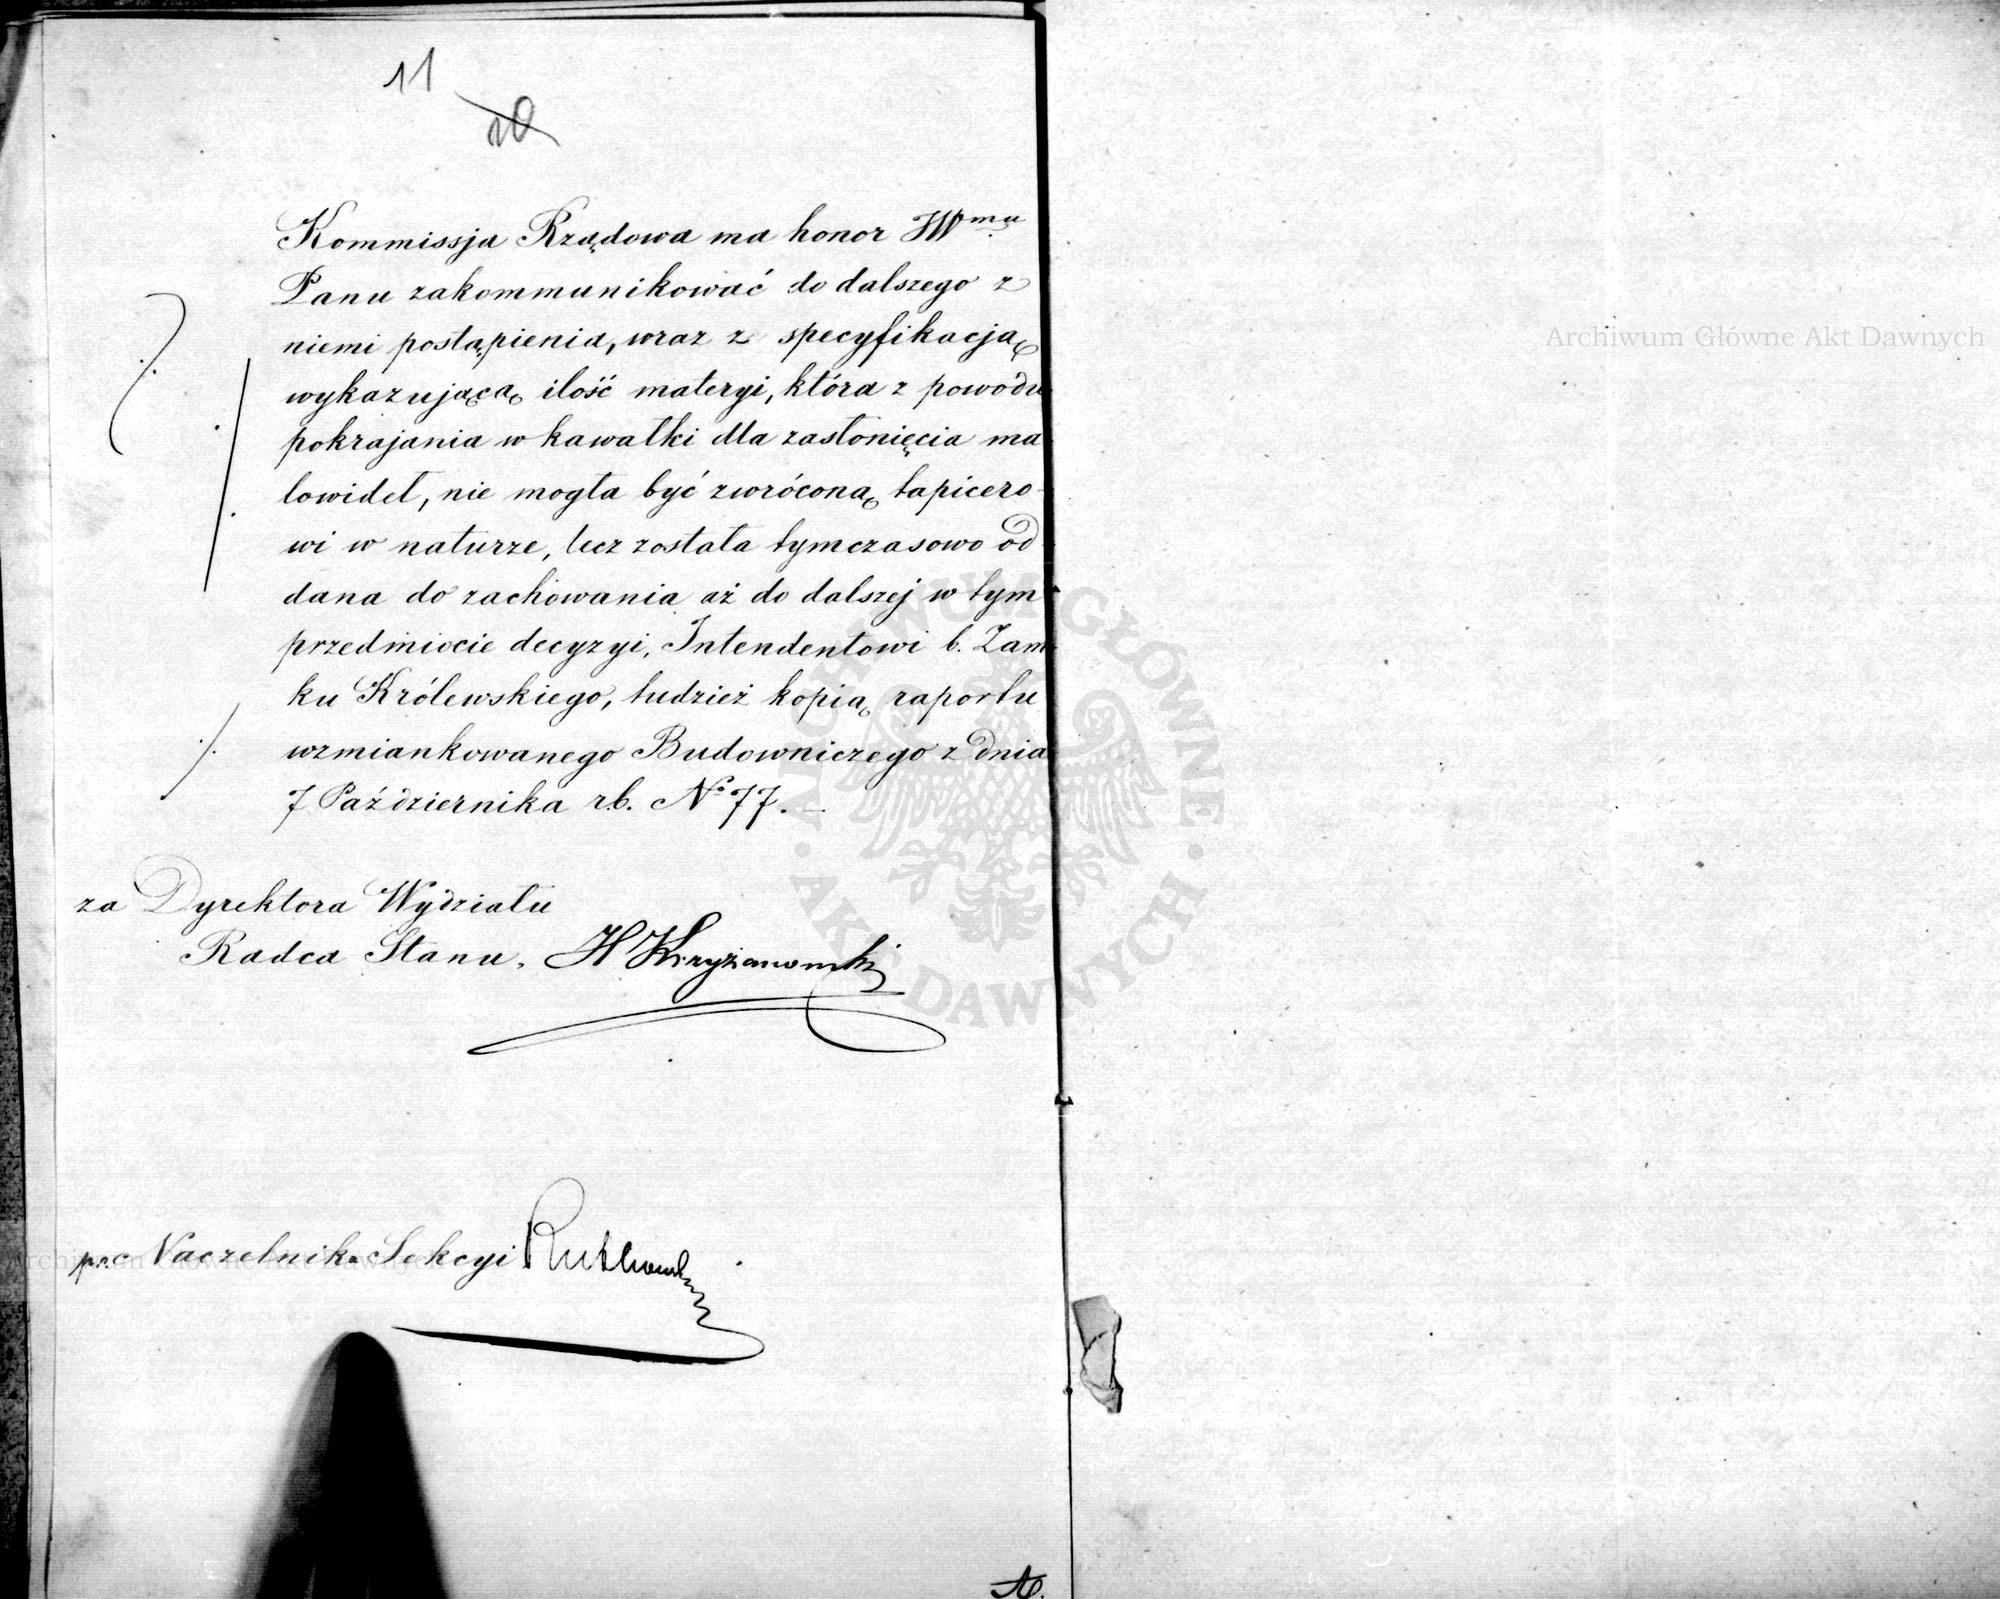 11
20
Kommissja Rządowa ma honor JWmu
Panu zakommunikować do dalszego z
niemi postąpienia, wraz z specyfikacją
wykazującą ilość materyi, która z powodu
pokrajania w kawałki dla zasłonięcia ma
lowideł, nie mogła być zwróconą tapicero-
wi w naturze, lecz została tymczasowo od
dana do zachowania aż do dalszej w tym
przedmiocie decyzyi, Intendentowi b. Zam-
ku Królewskiego, tudzież kopią raportu
wzmiankowanego Budowniczego z dnia
7 Października r.b. No 77. —
za Dyrektora Wydziału
Radca Stanu, H Krzyżanowski
Naczelnik Sekcyi Rutkowski
Archiwum Główne Akt Dawnych
ARCHIWUM GŁÓWNE · AKT DAWNYCH ·